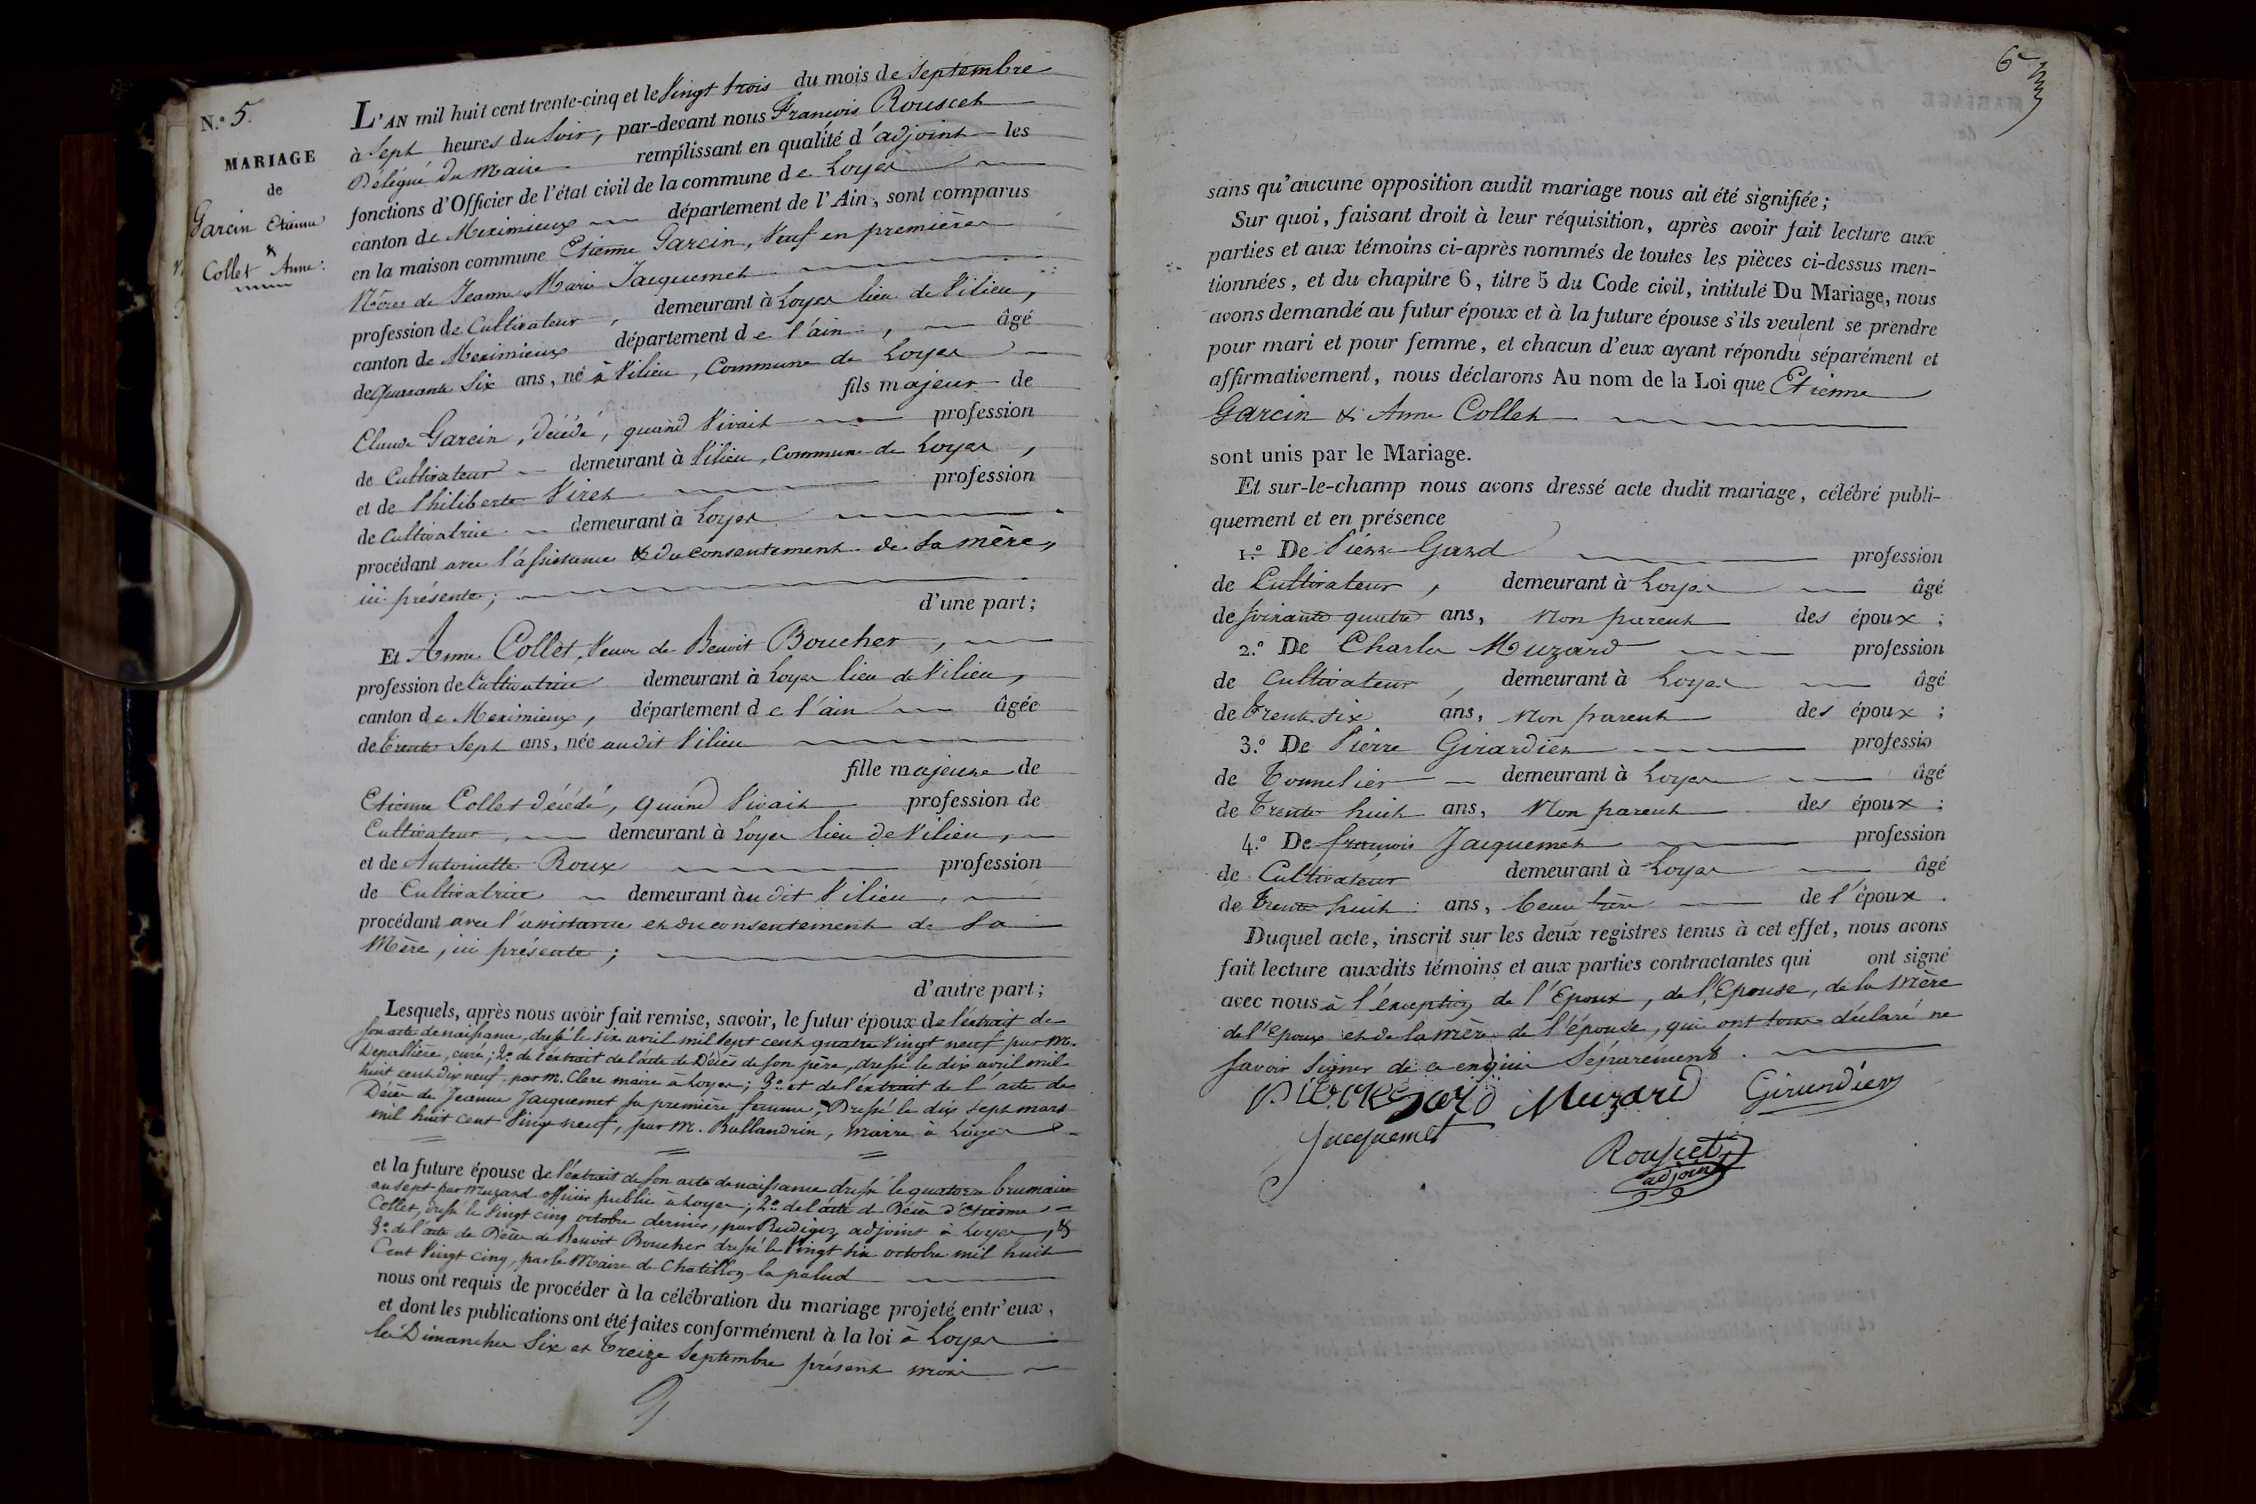 N.º 5.
MARIAGE
de
Garcin Etienne
&
Collet Anne.
L'AN mil huit cent trente-cinq et le Vingt trois du mois de Septembre
à Sept heures du Soir, par-devant nous François Rousset
Délégué du Maire remplissant en qualité d'adjoint les
fonctions d'Officier de l'état civil de la commune de Loyes
canton de Meximieux département de l'Ain, sont comparus
en la maison commune Etienne Garcin, Veuf en premières
Nôces de Jeanne Marie Jacquemet
profession de Cultivateur, demeurant à Loyes lieu de Vilieu,
canton de Meximieux département de l'ain, âgé
de Quarante Six ans, né à Vilieu, Commune de Loyes
fils majeur de
Claude Garcin, décédé, quand Vivait profession
de Cultivateur demeurant à Vilieu, Commune de Loyes,
et de Philiberte Viret profession
de Cultivatrice demeurant à Loyes
procédant avec l'assistance & du consentement de Sa mère,
ici présente;
d'une part;
Et Anne Collet, Veuve de Benoit Boucher,
profession de Cultivatrice demeurant à Loyes lieu de Vilieu,
canton de Meximieux, département de l'ain âgée
de trente Sept ans, née audit Vilieu
fille majeure de
Etienne Collet décédé, quand Vivait profession de
Cultivateur, demeurant à Loyes lieu de Vilieu,
et de Antoinette Roux profession
de Cultivatrice demeurant audit Vilieu,
procédant avec l'assistance et du consentement de Sa
Mère, ici présente;
d'autre part;
Lesquels, après nous avoir fait remise, savoir, le futur époux de l'extrait de
son acte de naissance, dressé le six avril mil sept cent quatre vingt neuf par M.
Depallière, curé; 2º de l'extrait de l'acte de Décès de son père, dressé le dix avril mil
huit cent dix neuf par M. Clerc maire à Loyes; 3º et de l'extrait de l'acte de
Décès de Jeanne Jacquemet sa première femme, Dressé le dix Sept mars
mil huit cent Vingt neuf, par M. Ballandrin, maire à Loyes
et la future épouse de l'extrait de son acte de naissance dressé le quatorze brumaire
an sept par Muzard officier public à Loyes; 2º de l'acte de Décès d'Etienne
Collet, dressé le Vingt cinq octobre dernier, par adjoint à Loyes, &
3º de l'acte de Décès de Benoit Boucher dressé le Vingt six octobre mil huit
Cent Vingt cinq, par le Maire de Chatillon la palud
nous ont requis de procéder à la célébration du mariage projeté entr'eux,
et dont les publications ont été faites conformément à la loi à Loyes
les Dimanches Six et Treize Septembre présent mois
6
sans qu'aucune opposition audit mariage nous ait été signifiée;
Sur quoi, faisant droit à leur réquisition, après avoir fait lecture aux
parties et aux témoins ci-après nommés de toutes les pièces ci-dessus men-
tionnées, et du chapitre 6, titre 5 du Code civil, intitulé Du Mariage, nous
avons demandé au futur époux et à la future épouse s'ils veulent se prendre
pour mari et pour femme, et chacun d'eux ayant répondu séparément et
affirmativement, nous déclarons Au nom de la Loi que Etienne
Garcin & Anne Collet
sont unis par le Mariage.
Et sur-le-champ nous avons dressé acte dudit mariage, célébré publi-
quement et en présence
1.º De Pierre Gard profession
de Cultivateur, demeurant à Loyes âgé
de soixante quatre ans, Non parent des époux;
2.º De Charles Muzard profession
de Cultivateur, demeurant à Loyes âgé
de Trente six ans, Non parent des époux;
3.º De Pierre Girardier professio
de Tonnelier demeurant à Loyes âgé
de Trente huit ans, Non parent des époux;
4.º De françois Jacquemet profession
de Cultivateur demeurant à Loyes âgé
de Trente huit ans, beau frère de l'époux.
Duquel acte, inscrit sur les deux registres tenus à cet effet, nous avons
fait lecture auxdits témoins et aux parties contractantes qui ont signé
avec nous à l'exception de l'Epoux, de l'Epouse, de la Mère
de l'Epoux et de la mère de l'épouse, qui ont tous déclaré ne
Savoir Signer de ce enquis Séparément.
Pierre Gard Muzard Girardier
Jacquemet
Rousset
adjoint